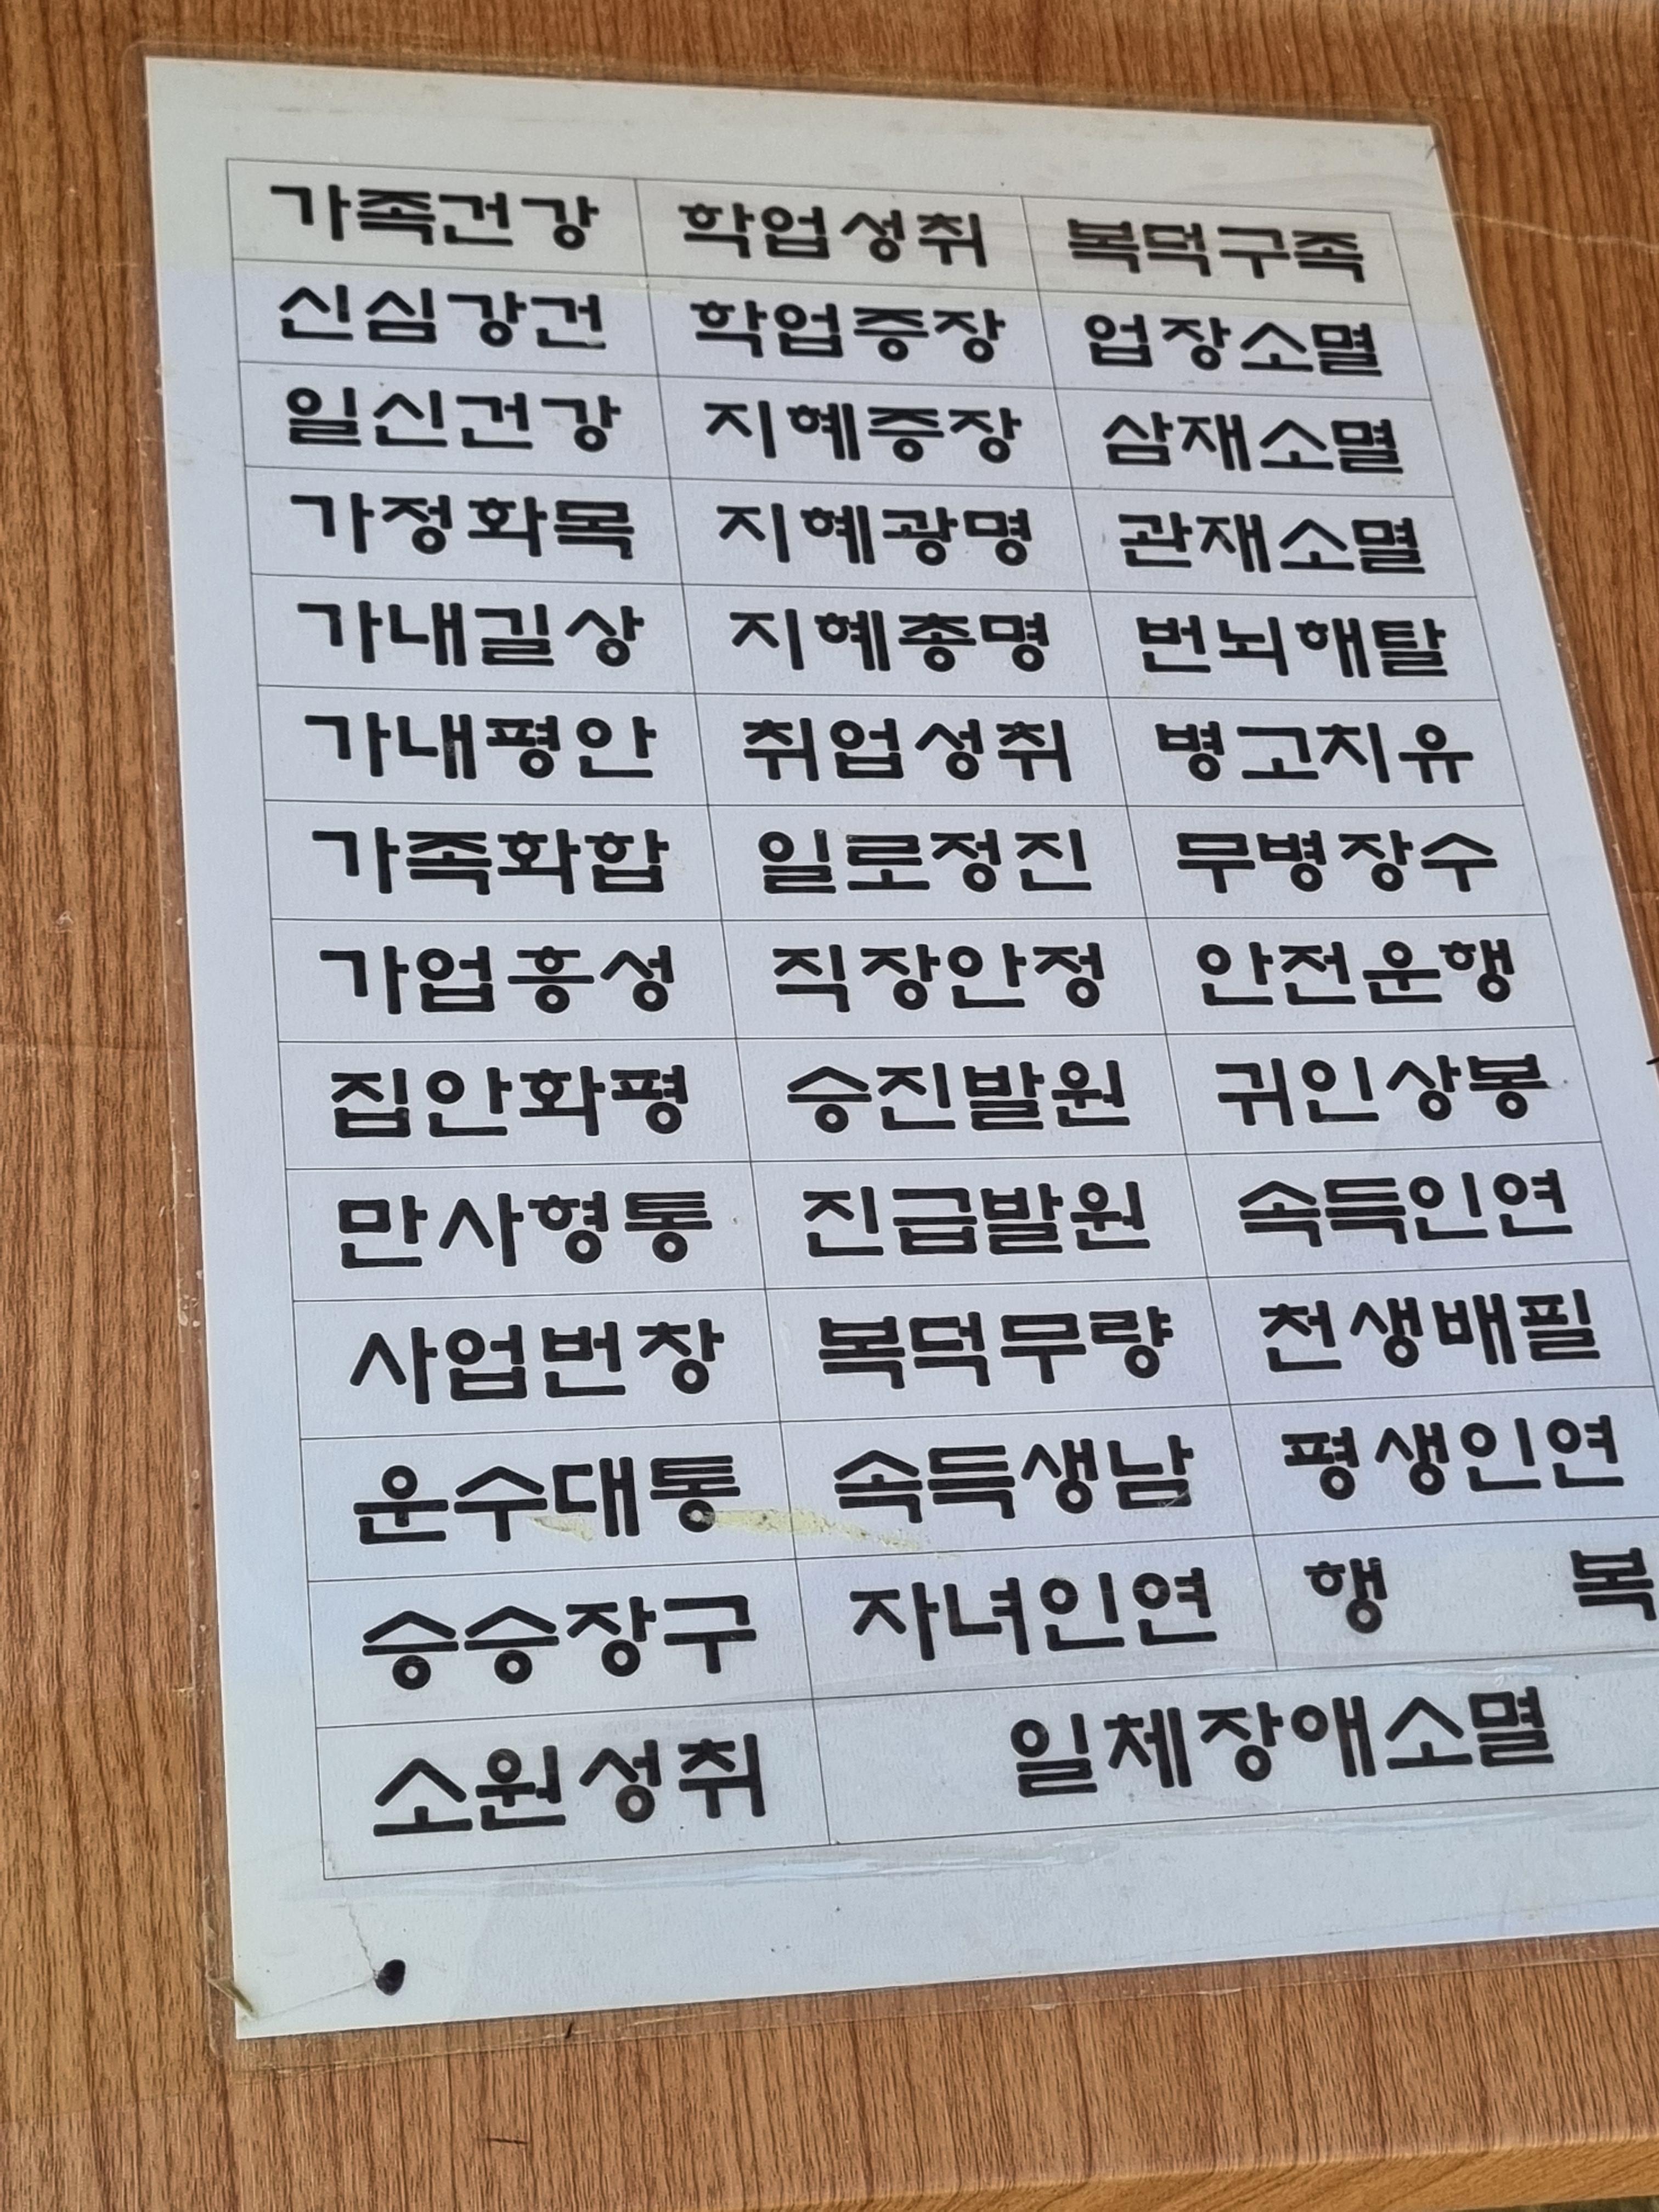 가족건강 학업성취 복덕구족
신심강건 학업증장 업장소멸
일신건강 지혜증장 삼재소멸
가정화목 지혜광명 관재소멸
가내길상 지혜총명 번뇌해탈
가내평안 취업성취 병고치유
가족화합 일로정진 무병장수
가업흥성 직장안정 안전운행
집안화평 승진발원 귀인상봉
만사형통 진급발원 속득인연
사업번창 복덕무량 천생배필
운수대통 속득생남 평생인연
승승장구 자녀인연 행 복
소원성취 일체장애소멸